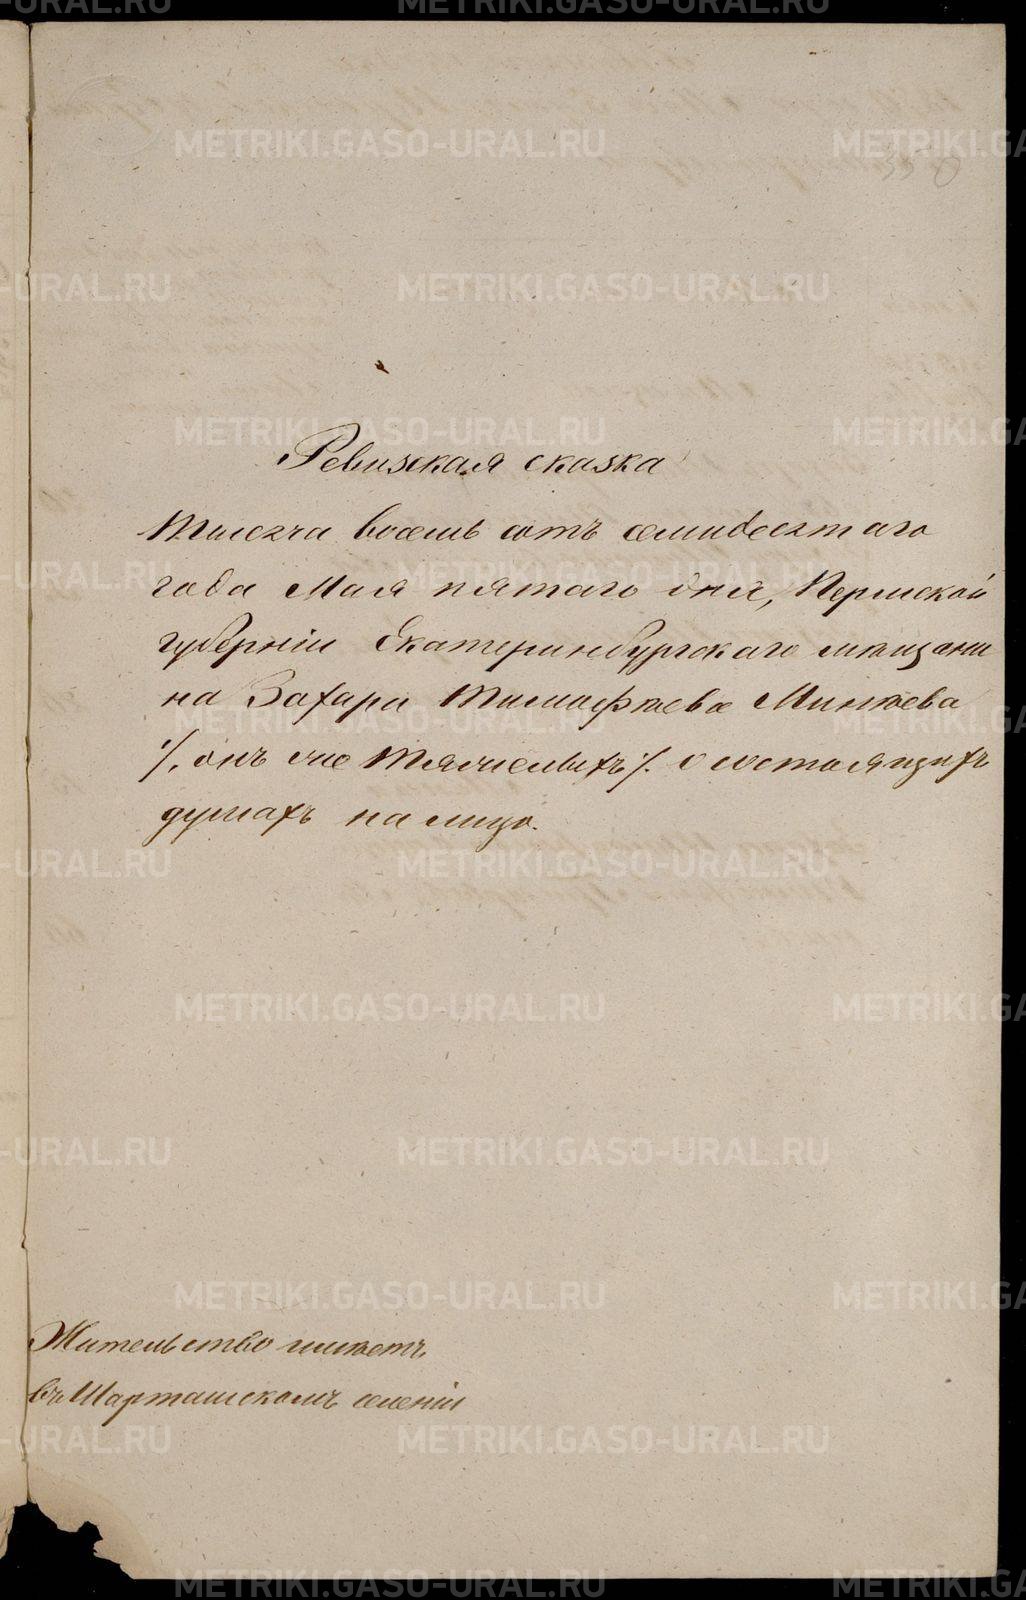 350
Ревизская сказка
Тысяча восемь сотъ семидесятаго
года Мая пятаго дня, Пермской
губерніи Екатеринбургскаго мѣщани
на Захара Тимофѣева Минѣева
/. онъ же ./. о состоящихъ
душахъ на лицо.
Жительство имѣетъ
въ Шарташскомъ селеніи
METRIKI.GASO-URAL.RU